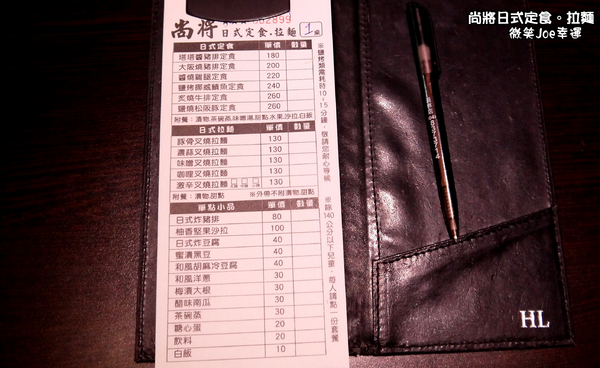 尚將日式定食。拉麵
微笑Joe幸運
尚將 日式定食.拉麵 1桌
日式定食 單價 數量
塔塔醬豬排定食 180
大阪燒豬排定食 200
醬燒雞腿定食 220
鹽烤挪威鯖魚定食 240
炙燒牛排定食 260
鹽燒松阪豚定食 260
附餐：漬物.茶碗蒸.味噌湯.甜點.水果.沙拉.白飯
※鹽烤類需耗時10-15分鐘，敬請您耐心等候
日式拉麵 單價 數量
豚骨叉燒拉麵 130
濃蒜叉燒拉麵 130
味噌叉燒拉麵 130
咖哩叉燒拉麵 130
激辛叉燒拉麵 130
附餐：漬物.甜點 ※外帶不附漬物.甜點
單點小品 單價 數量
日式炸豬排 80
柚香堅果沙拉 100
日式炸豆腐 40
蜜漬黑豆 40
和風胡麻冷豆腐 40
和風洋蔥 30
梅漬大根 30
醋味南瓜 30
茶碗蒸 30
糖心蛋 20
飲料 20
白飯 10
※除140公分以下兒童，每人請點一份套餐
HL